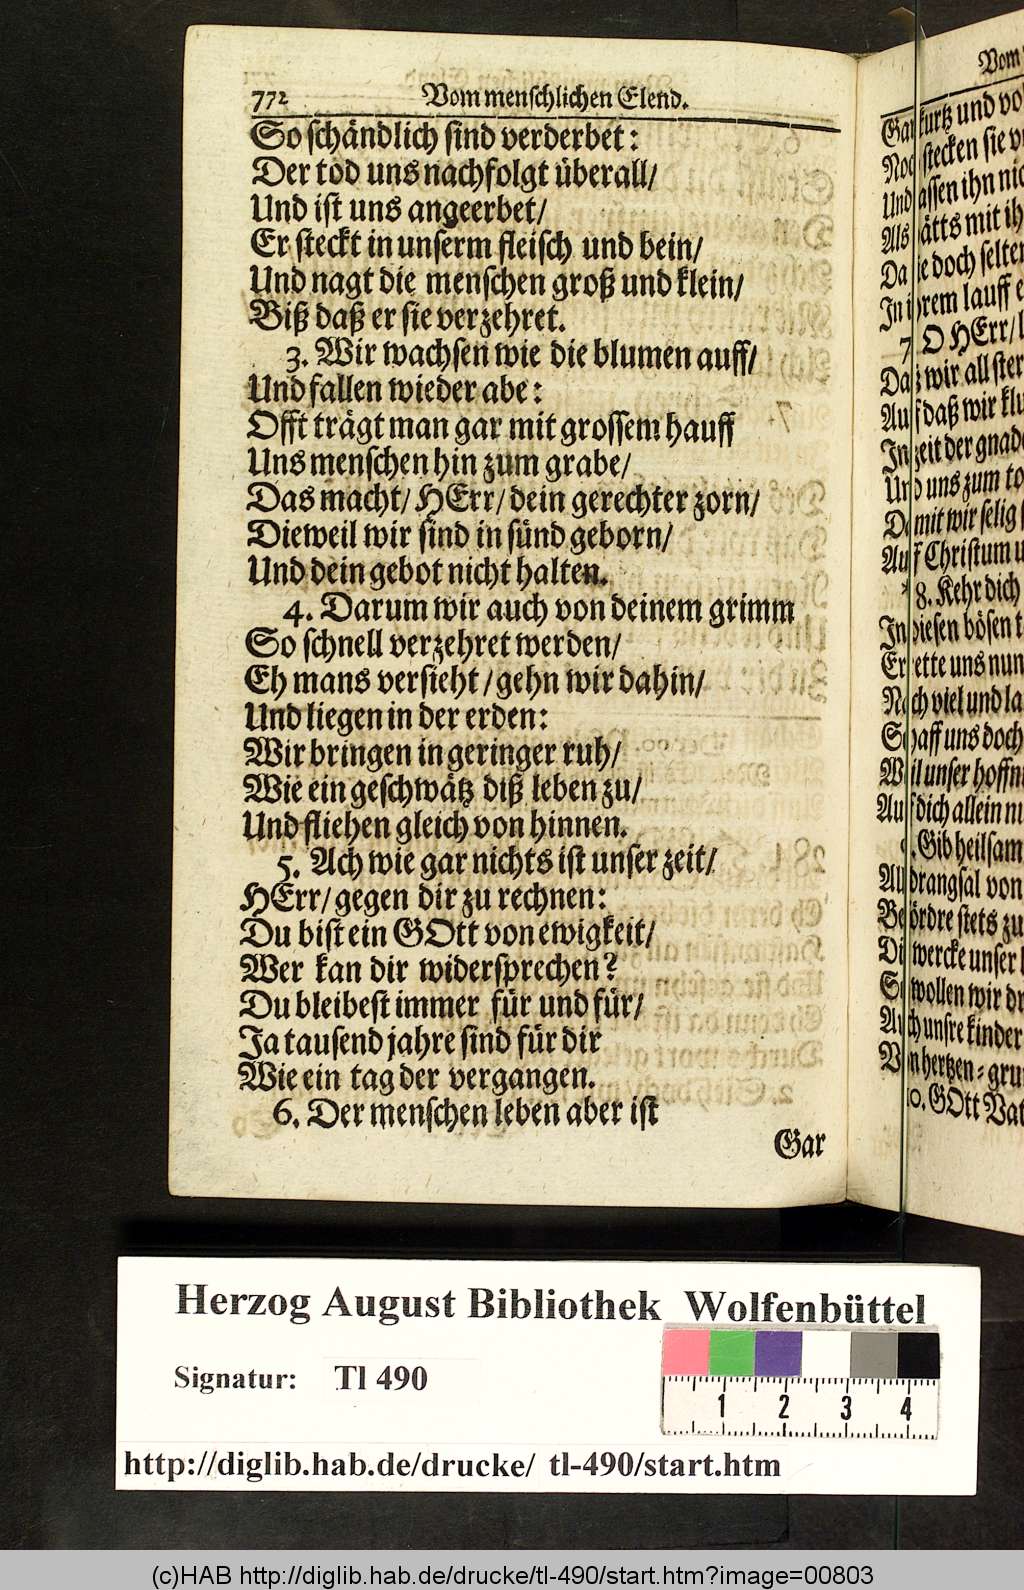 772 Vom menschlichen Elend.
So schändlich sind verderbet:
Der tod uns nachfolgt überall/
Und ist uns angeerbet/
Er steckt in unserm fleisch und bein/
Und nagt die menschen groß und klein/
Biß daß er sie verzehret.
3. Wir wachsen wie die blumen auff/
Und fallen wieder abe:
Offt trägt man gar mit grossem hauff
Uns menschen hin zum grabe/
Das macht/ HErr/ dein gerechter zorn/
Dieweil wir sind in sünd geborn/
Und dein gebot nicht halten.
4. Darum wir auch von deinem grimm
So schnell verzehret werden/
Eh mans versieht/ gehn wir dahin/
Und liegen in der erden:
Wir bringen in geringer ruh/
Wie ein geschwätz diß leben zu/
Und fliehen gleich von hinnen.
5. Ach wie gar nichts ist unser zeit/
HErr/ gegen dir zu rechnen:
Du bist ein GOtt von ewigkeit/
Wer kan dir widersprechen?
Du bleibest immer für und für/
Ja tausend jahre sind für dir
Wie ein tag der vergangen.
6. Der menschen leben aber ist
Gar
Vom
kurtz und
stecken sie
ihn
mit
doch
lauff
7. O HErr/
wir all
daß wir
zeit der
uns zum
wir selig
Christum
8. Kehr dich
diesen bösen
uns nun
viel und
uns doch
unser
dich allein
Gib heilsam
drangsal von
stets zu
wercke unser
wollen wir
unsre kinder
hertzen-
GOtt
Herzog August Bibliothek Wolfenbüttel
Signatur: Tl 490
1 2 3 4
http://diglib.hab.de/drucke/ tl-490/start.htm
(c)HAB http://diglib.hab.de/drucke/tl-490/start.htm?image=00803